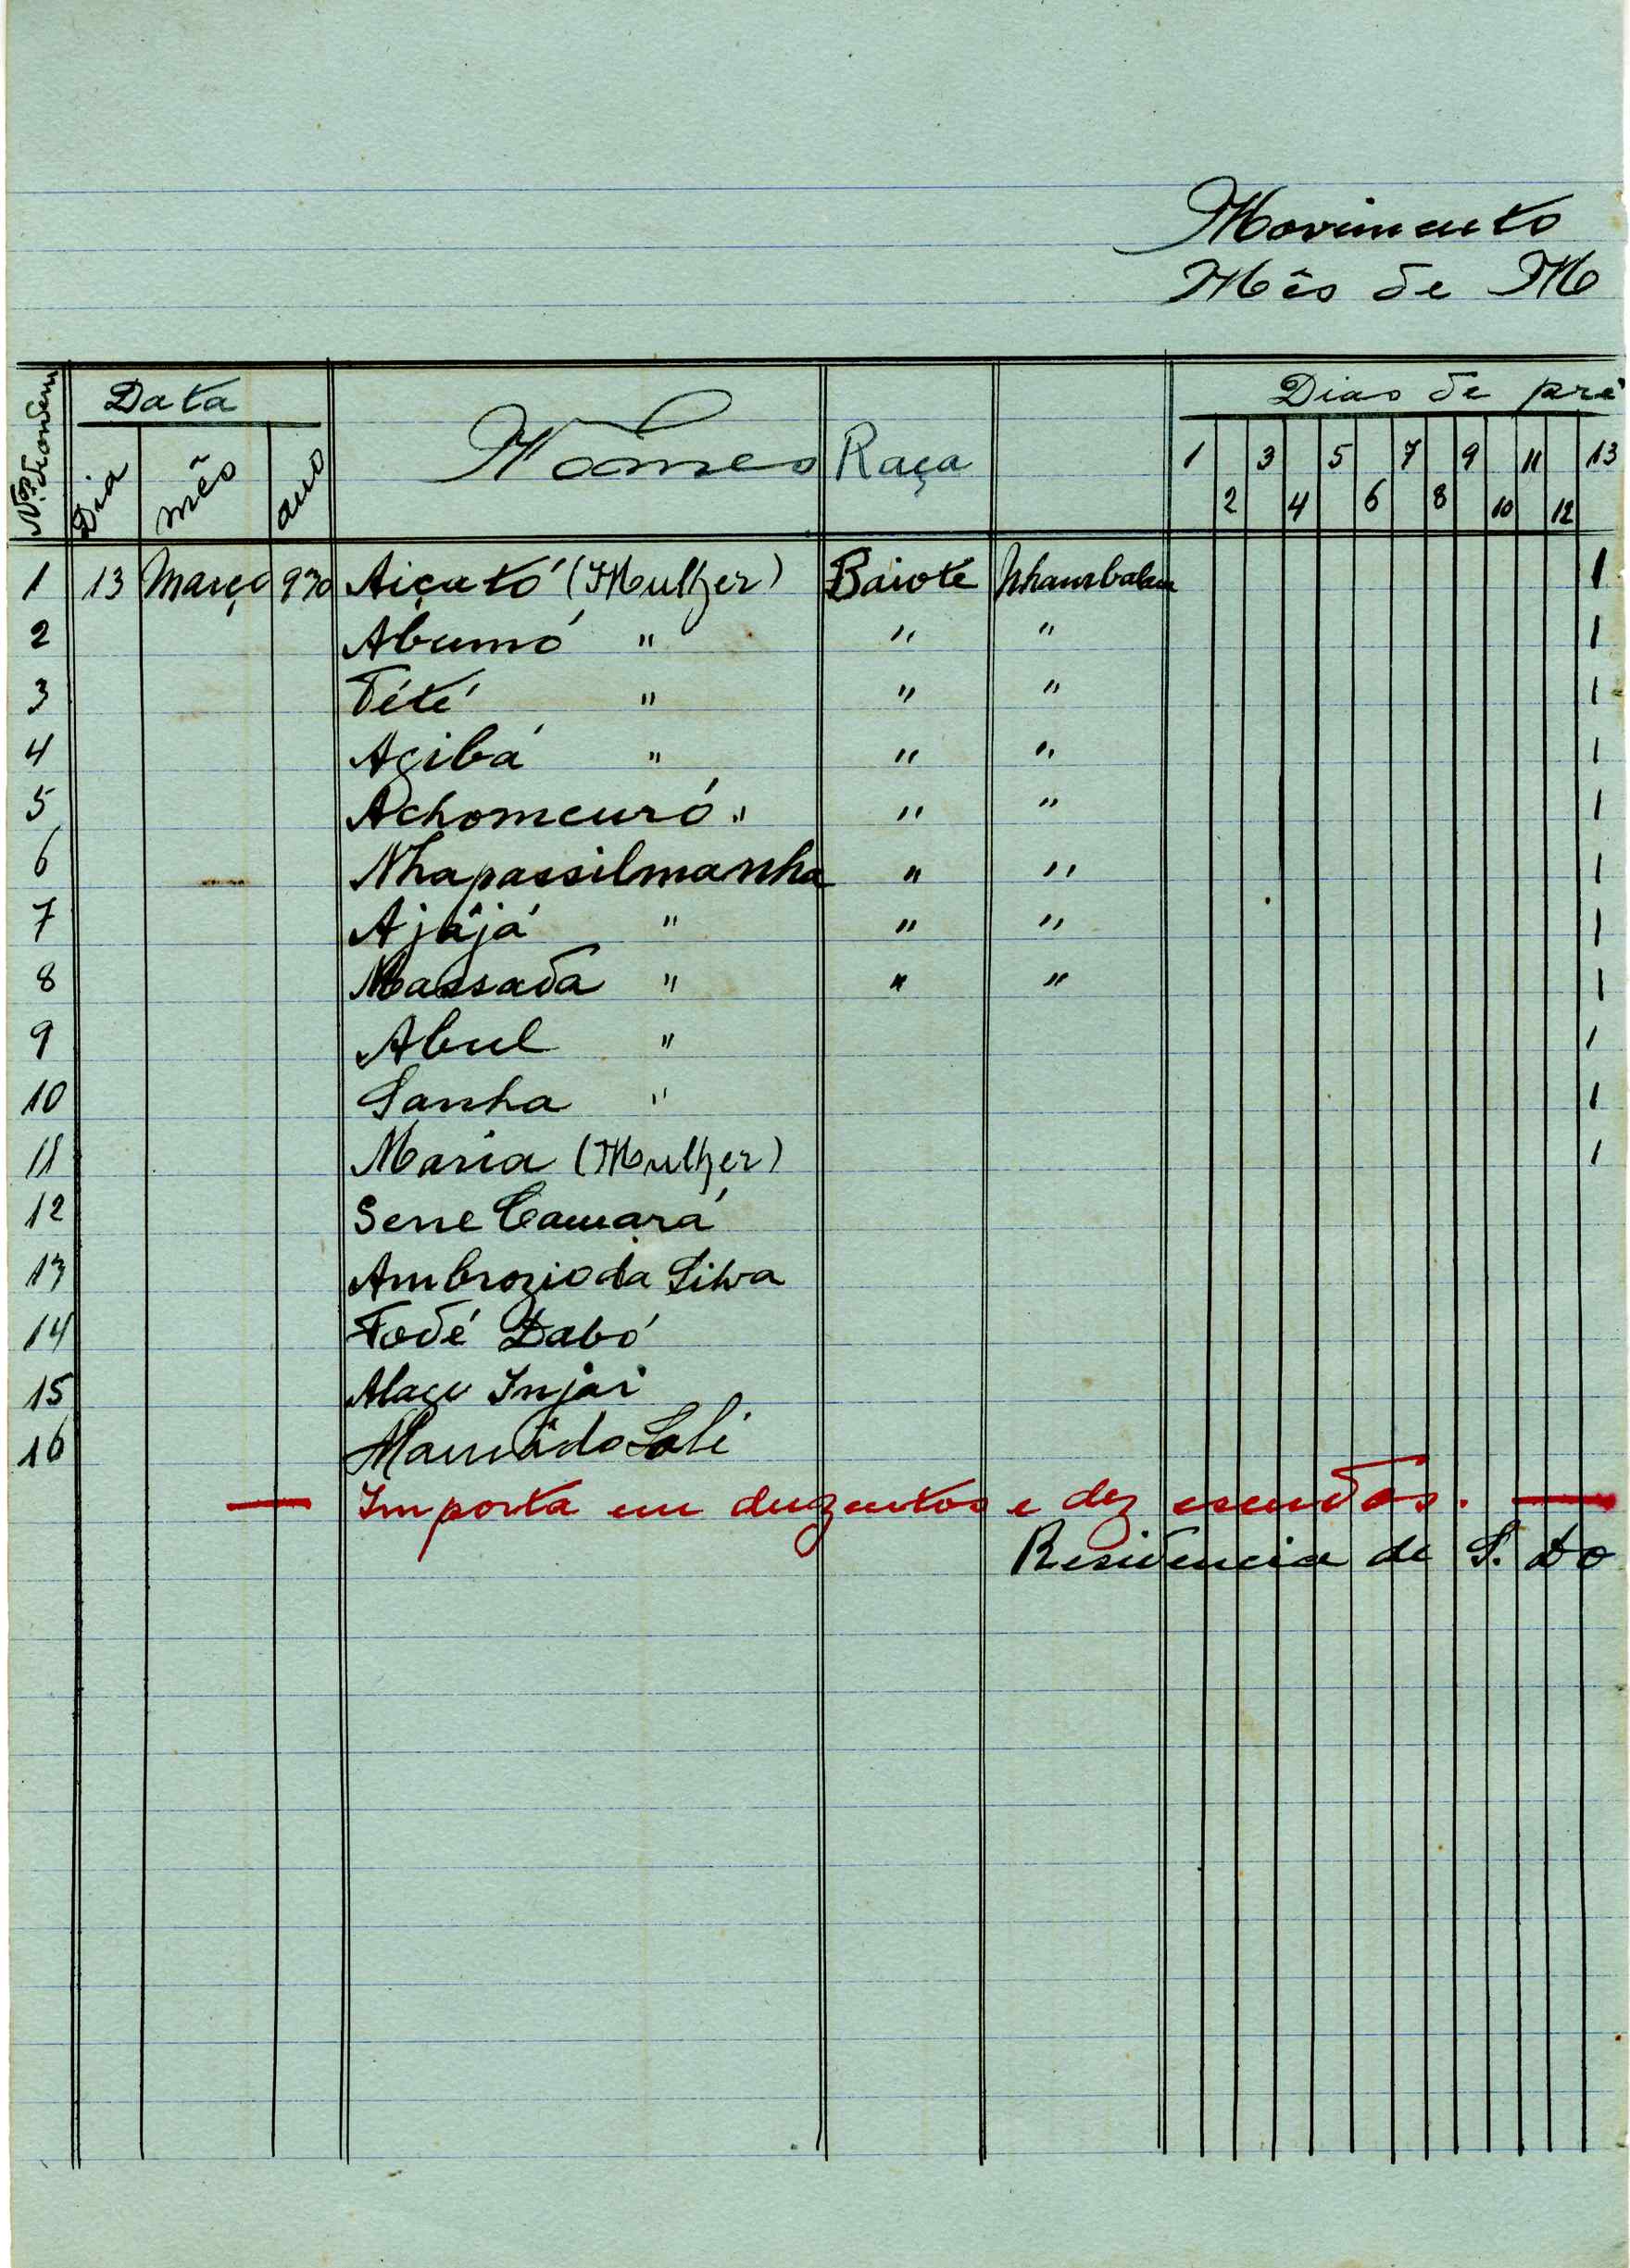 Movimento
Mês de M
Nos. de ordem Data Nomes Raça Dias de pre
Dia mês ano 1 2 3 4 5 6 7 8 9 10 11 12 13
1 13 Março 930 Aiçutó (Mulher) Baiote 1
2 Abumó " " " 1
3 Tété " " " 1
4 Açibá " " " 1
5 Achomeuró " " " 1
6 Nhapassilmanha " " 1
7 Ajájá " " " 1
8 Massada " " " 1
9 Abul " 1
10 Sanha " 1
11 Maria (Mulher) 1
12 Sene Camará
13 Ambrozio da Silva
14 Fodé Dabó
15 Alaçe Injai
16 Mamádo
— Importa em duzentos e dez escudos. —
Residencia de S. Do